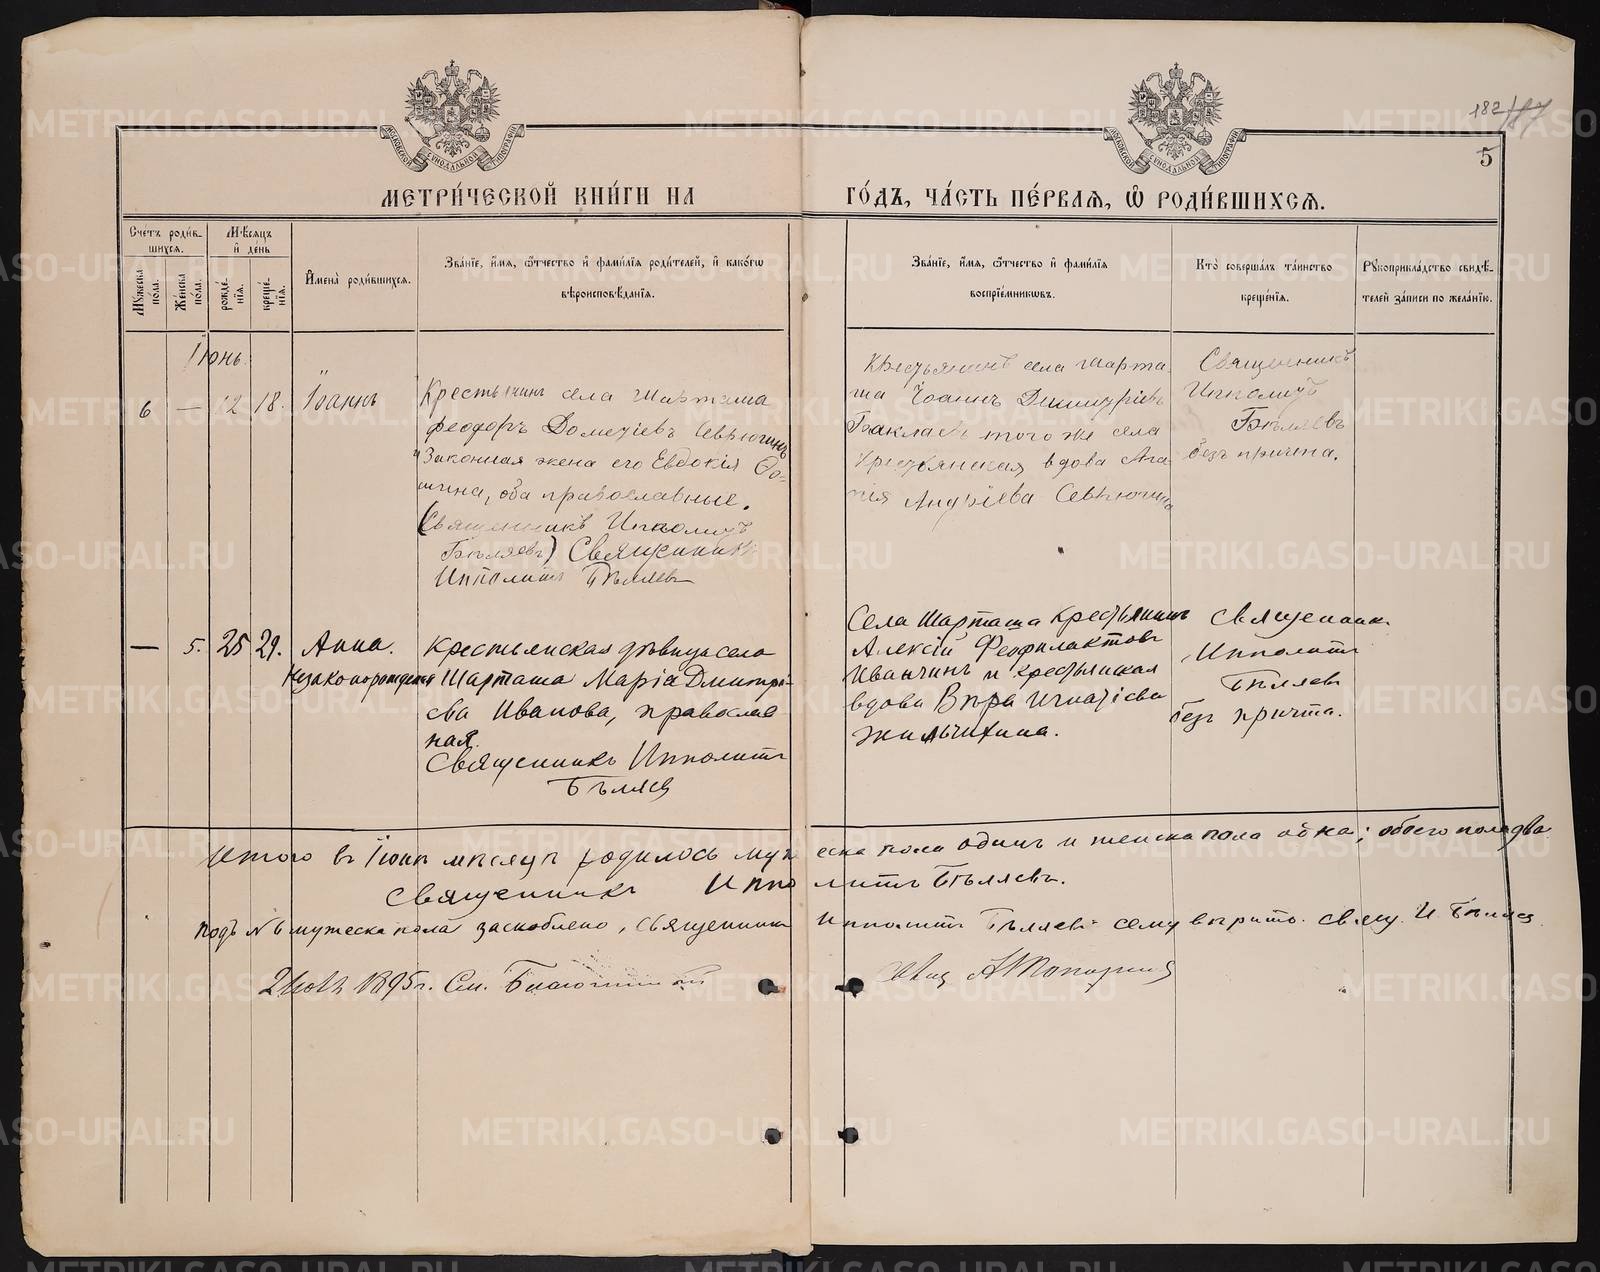 182
5
МЕТРИ́ЧЕСКОЙ КНИ́ГИ НА ГО́ДЪ, ЧА́СТЬ ПЕ́РВАЯ, Ѽ РОДИ́ВШИХСЯ.
Сче́тъ роди́в-
шихся.
Мѣ́сяцъ
и҆ де́нь
Мꙋ́жеска по́ла.
Же́нска по́ла.
рожде́-
нїѧ.
креще́-
нїѧ.
И҆мена̀ роди́вшихся.
Зва́нїе, и҆́мя, ѻ҆́тчество и҆ фами́лїя роди́телей, и҆ како́гѡ
вѣроисповѣ́данїя.
Зва́нїе, и҆́мя, ѻ҆́тчество и҆ фами́лїя
воспрїе́мниковъ.
Кто̀ соверша́лъ та́инство
креще́нїя.
Рꙋкоприкла́дство свидѣ́-
телей за́писи по жела́нїю.
Іюнь
6 — 12 18. Іоаннъ
Крестьянинъ села Шарташа
Феодоръ Дометіевъ Севрюгинъ
Законная жена его Евдокія Фо-
мина, оба православные.
(Священникъ Ипполитъ
Бѣляевъ) Священникъ
Ипполитъ Бѣляевъ
Крестьянинъ села Шарта-
ша Іоаннъ Димитріевъ
того же села
Крестьянская вдова Ага-
пія Андріева Севрюгина
Священникъ
Ипполитъ
Бѣляевъ
безъ причта.
— 5. 25 29. Анна.
Незаконорожденная
Крестьянская дѣвица села
Шарташа Марія Дмитрі-
ева Иванова, православ-
ная.
Священникъ Ипполитъ
Бѣляевъ
Села Шарташа Крестьянинъ
Алексій Феофилактовъ
Иванчинъ и крестьянская
вдова Вѣра Игнатіева
Жильчихина.
Священникъ
Ипполитъ
Бѣляевъ
безъ причта.
Итого въ Іюнѣ мѣсяцѣ родилось мужеска пола одинъ и женска пола одна; обоего пола два
Священникъ Ипполитъ Бѣляевъ.
Подъ № 6 мужеска пола заскоблено, Священникъ Ипполитъ Бѣляевъ сему вѣрить. Свящ. И. Бѣляевъ
1895 г.
METRIKI.GASO-URAL.RU